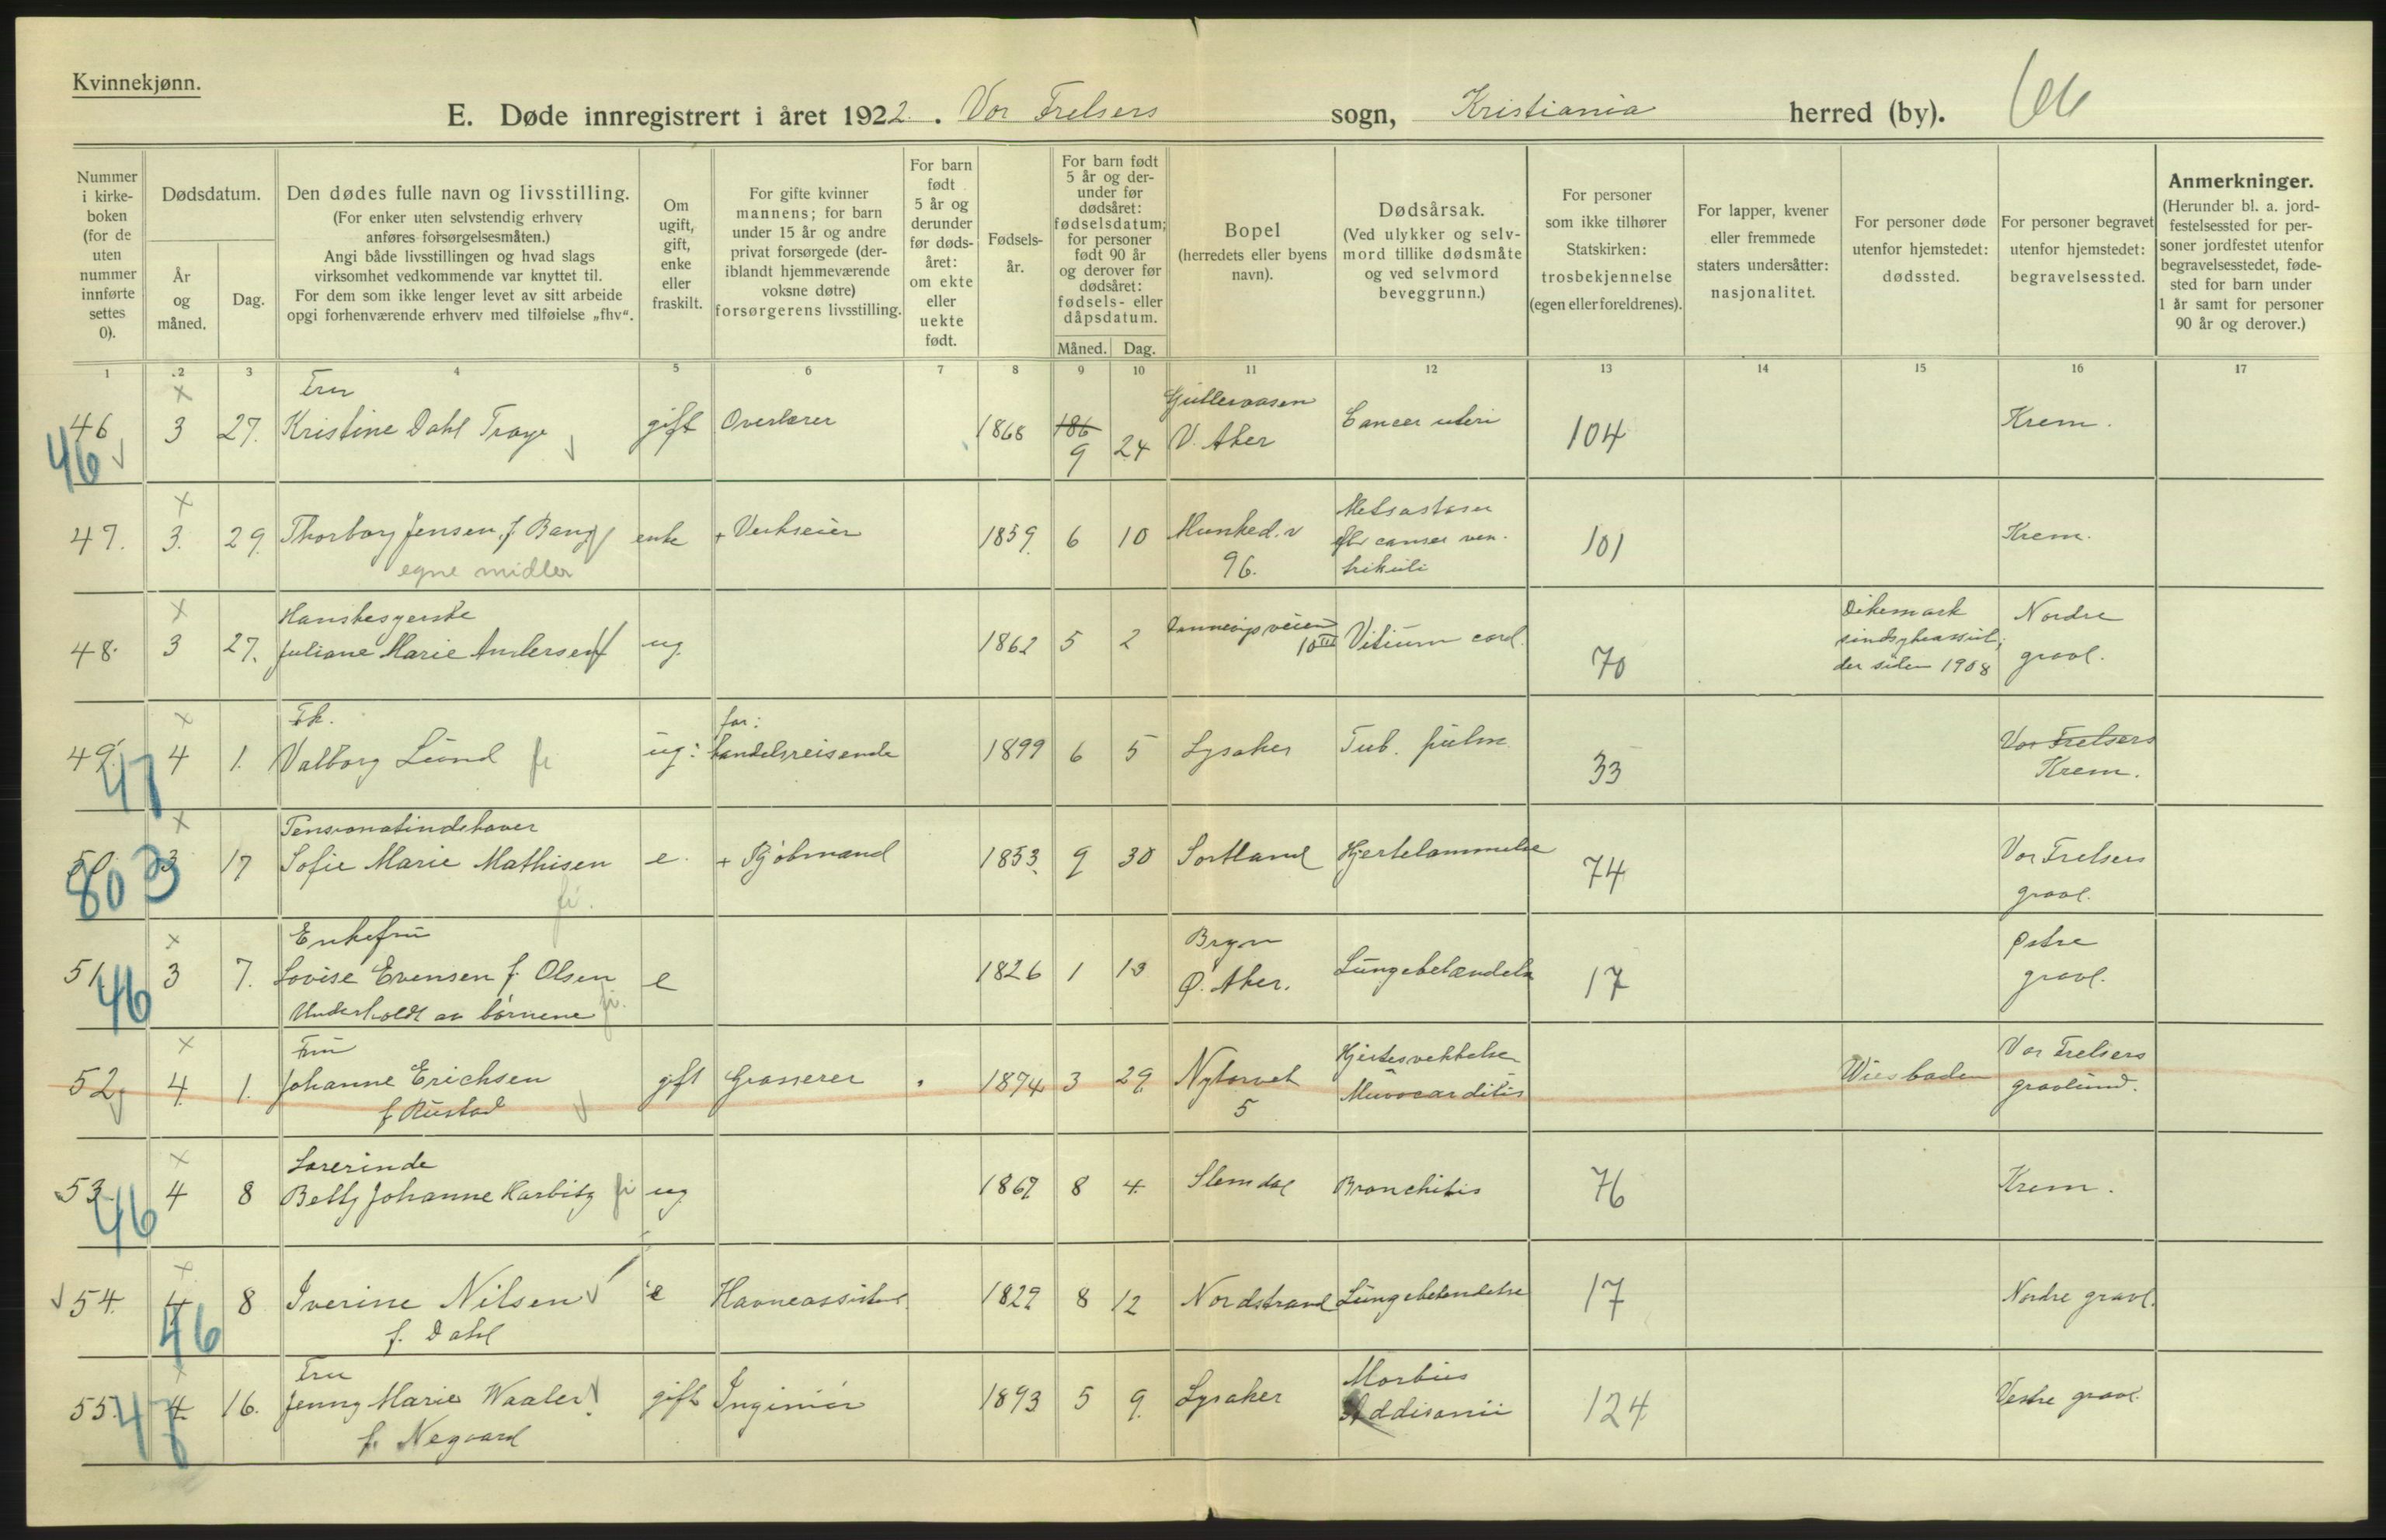 Kvinnekjønn.
E. Døde innregistrert i året 1922. Vor Frelsers sogn, Kristiania herred (by).
Nummer i kirkeboken (for de uten nummer innførte settes 0).
Dødsdatum.
År og måned.
Dag.
Den dødes fulle navn og livsstilling.
(For enker uten selvstendig erhverv
anføres forsørgelsesmåten.)
Angi både livsstillingen og hvad slags
virksomhet vedkommende var knyttet til.
For dem som ikke lenger levet av sitt arbeide
opgi forhenværende erhverv med tilføielse „fhv“.
Om ugift, gift, enke eller fraskilt.
For gifte kvinner
mannens; for barn
under 15 år og andre
privat forsørgede (der-
iblandt hjemmeværende
voksne døtre)
forsørgerens livsstilling.
For barn født 5 år og derunder før dødsåret: om ekte eller uekte født.
Fødsels-
år.
For barn født
5 år og der-
under før
dødsåret:
fødselsdatum;
for personer
født 90 år
og derover før
dødsåret:
fødsels- eller
dåpsdatum.
Måned. Dag.
Bopel
(herredets eller byens
navn).
Dødsårsak.
(Ved ulykker og selv-
mord tillike dødsmåte
og ved selvmord
beveggrunn.)
For personer
som ikke tilhører
Statskirken:
trosbekjennelse
(egen eller foreldrenes).
For lapper, kvener
eller fremmede
staters undersåtter:
nasjonalitet.
For personer døde
utenfor hjemstedet:
dødssted.
For personer begravet
utenfor hjemstedet:
begravelsessted.
Anmerkninger.
(Herunder bl. a. jord-
festelsessted for per-
soner jordfestet utenfor
begravelsesstedet, føde-
sted for barn under
1 år samt for personer
90 år og derover.)
1 2 3 4 5 6 7 8 9 10 11 12 13 14 15 16 17
Fru
46 3 27. Kristine Dahl gift Overlærer 1868 186 9 24 V. Aker Cancer uteri 104 Krem.
46
47. 3. 29. Thorborg Jensen, f. Bang enke + Verkseier 1859 6 10 Munked.v 96. Metastaser efter cancer ventrikuli 101 Krem.
egne midler
Husbesyerske
48. 3 27. Juliane Marie Andersen ug. 1862 5 2 Dannevigsveien 10 III Vitium cord. 70 Dikemark sindsykeasyl, der siden 1908 Nordre gravl.
Fk.
49. 4 1. Valborg Lund ug: far: handelsreisende 1899 6 5 Lysaker Tub. pulm. 33 Vor Frelsers Krem.
47
Pensionatindehaver
50. 3 17 Sofie Marie Mathisen e. + Kjøbmand 1853 9 30 Sortland Hjertelammelse 74 Vor Frelsers gravl.
803
Enkefru
51 3 7. Lovise Evensen f. Olsen e 1826 1 13 Bryn Ø. Aker. Lungebetændelse 17 Østre gravl.
Underholdt av børnene
46
Fru
52 4. 1. Johanne Erichsen gift Grosserer 1874 3 29 Nytorvet 5 Hjertesvekkelse Myocarditis Wiesbaden Vor Frelsers gravlund.
f. Rustad
Lærerinde
53. 4 8 Betty Johanne Harbitz ug 1867 8 4. Slemdal Bronchitis 76 Krem.
46
54. 4 8 Iverine Nilsen e Havneassistent 1829 8 12 Nordstrand Lungebetendelse 17 Nordre gravl.
f. Dahl
46
Fru
55. 4. 16. Jenny Marie Waaler gift Ingeniør 1893 5 9. Lysaker Morbus Addisonii 124 Vestre gravl.
f. Negaard
47